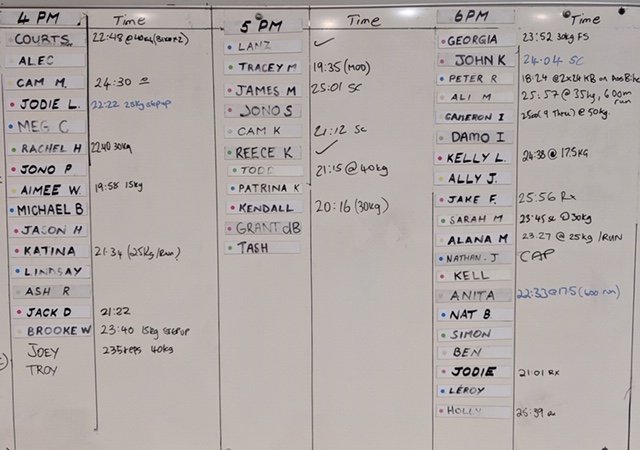 4 PM Time
COURTS 22:48 @ 40kg
ALEC
CAM M. 24:30
JODIE L. 22:22 25kg stepup
MEG C
RACHEL H 22:40 30kg
JONO P
AIMEE W. 19:58 15kg
MICHAEL B
JASON H
KATINA 21:34 (25kg/Run)
LINDSAY
ASH R
JACK D 21:22
BROOKE W 23:40 15kg stepup
JOEY 235 reps 40kg
TROY
5 PM Time
LANZ ✓
TRACEY M 19:35 (MOD)
JAMES M 25:01 SC
JONO S
CAM K 21:12 SC
REECE K ✓
TODD 21:15 @ 40kg
PATRINA K
KENDALL 20:16 (30kg)
GRANT dB
TASH
6PM Time
GEORGIA 23:52 30kg FS
JOHN K 24:04 SC
PETER R 18:24 @ 2x24 KB on Bike
ALI M 25:57 @ 35kg, 600m run
CAMERON I @ 50kg.
DAMO I
KELLY L. 24:38 @ 17.5KG
ALLY J.
JAKE F. 25:56 Rx
SARAH M 23:45 sc @ 30kg
ALANA M 23:27 @ 25kg /RUN
NATHAN. J CAP
KELL
ANITA 22:33 @ 17.5 (600 run)
NAT B.
SIMON
BEN
JODIE 21:01 Rx
LEROY
HOLLY